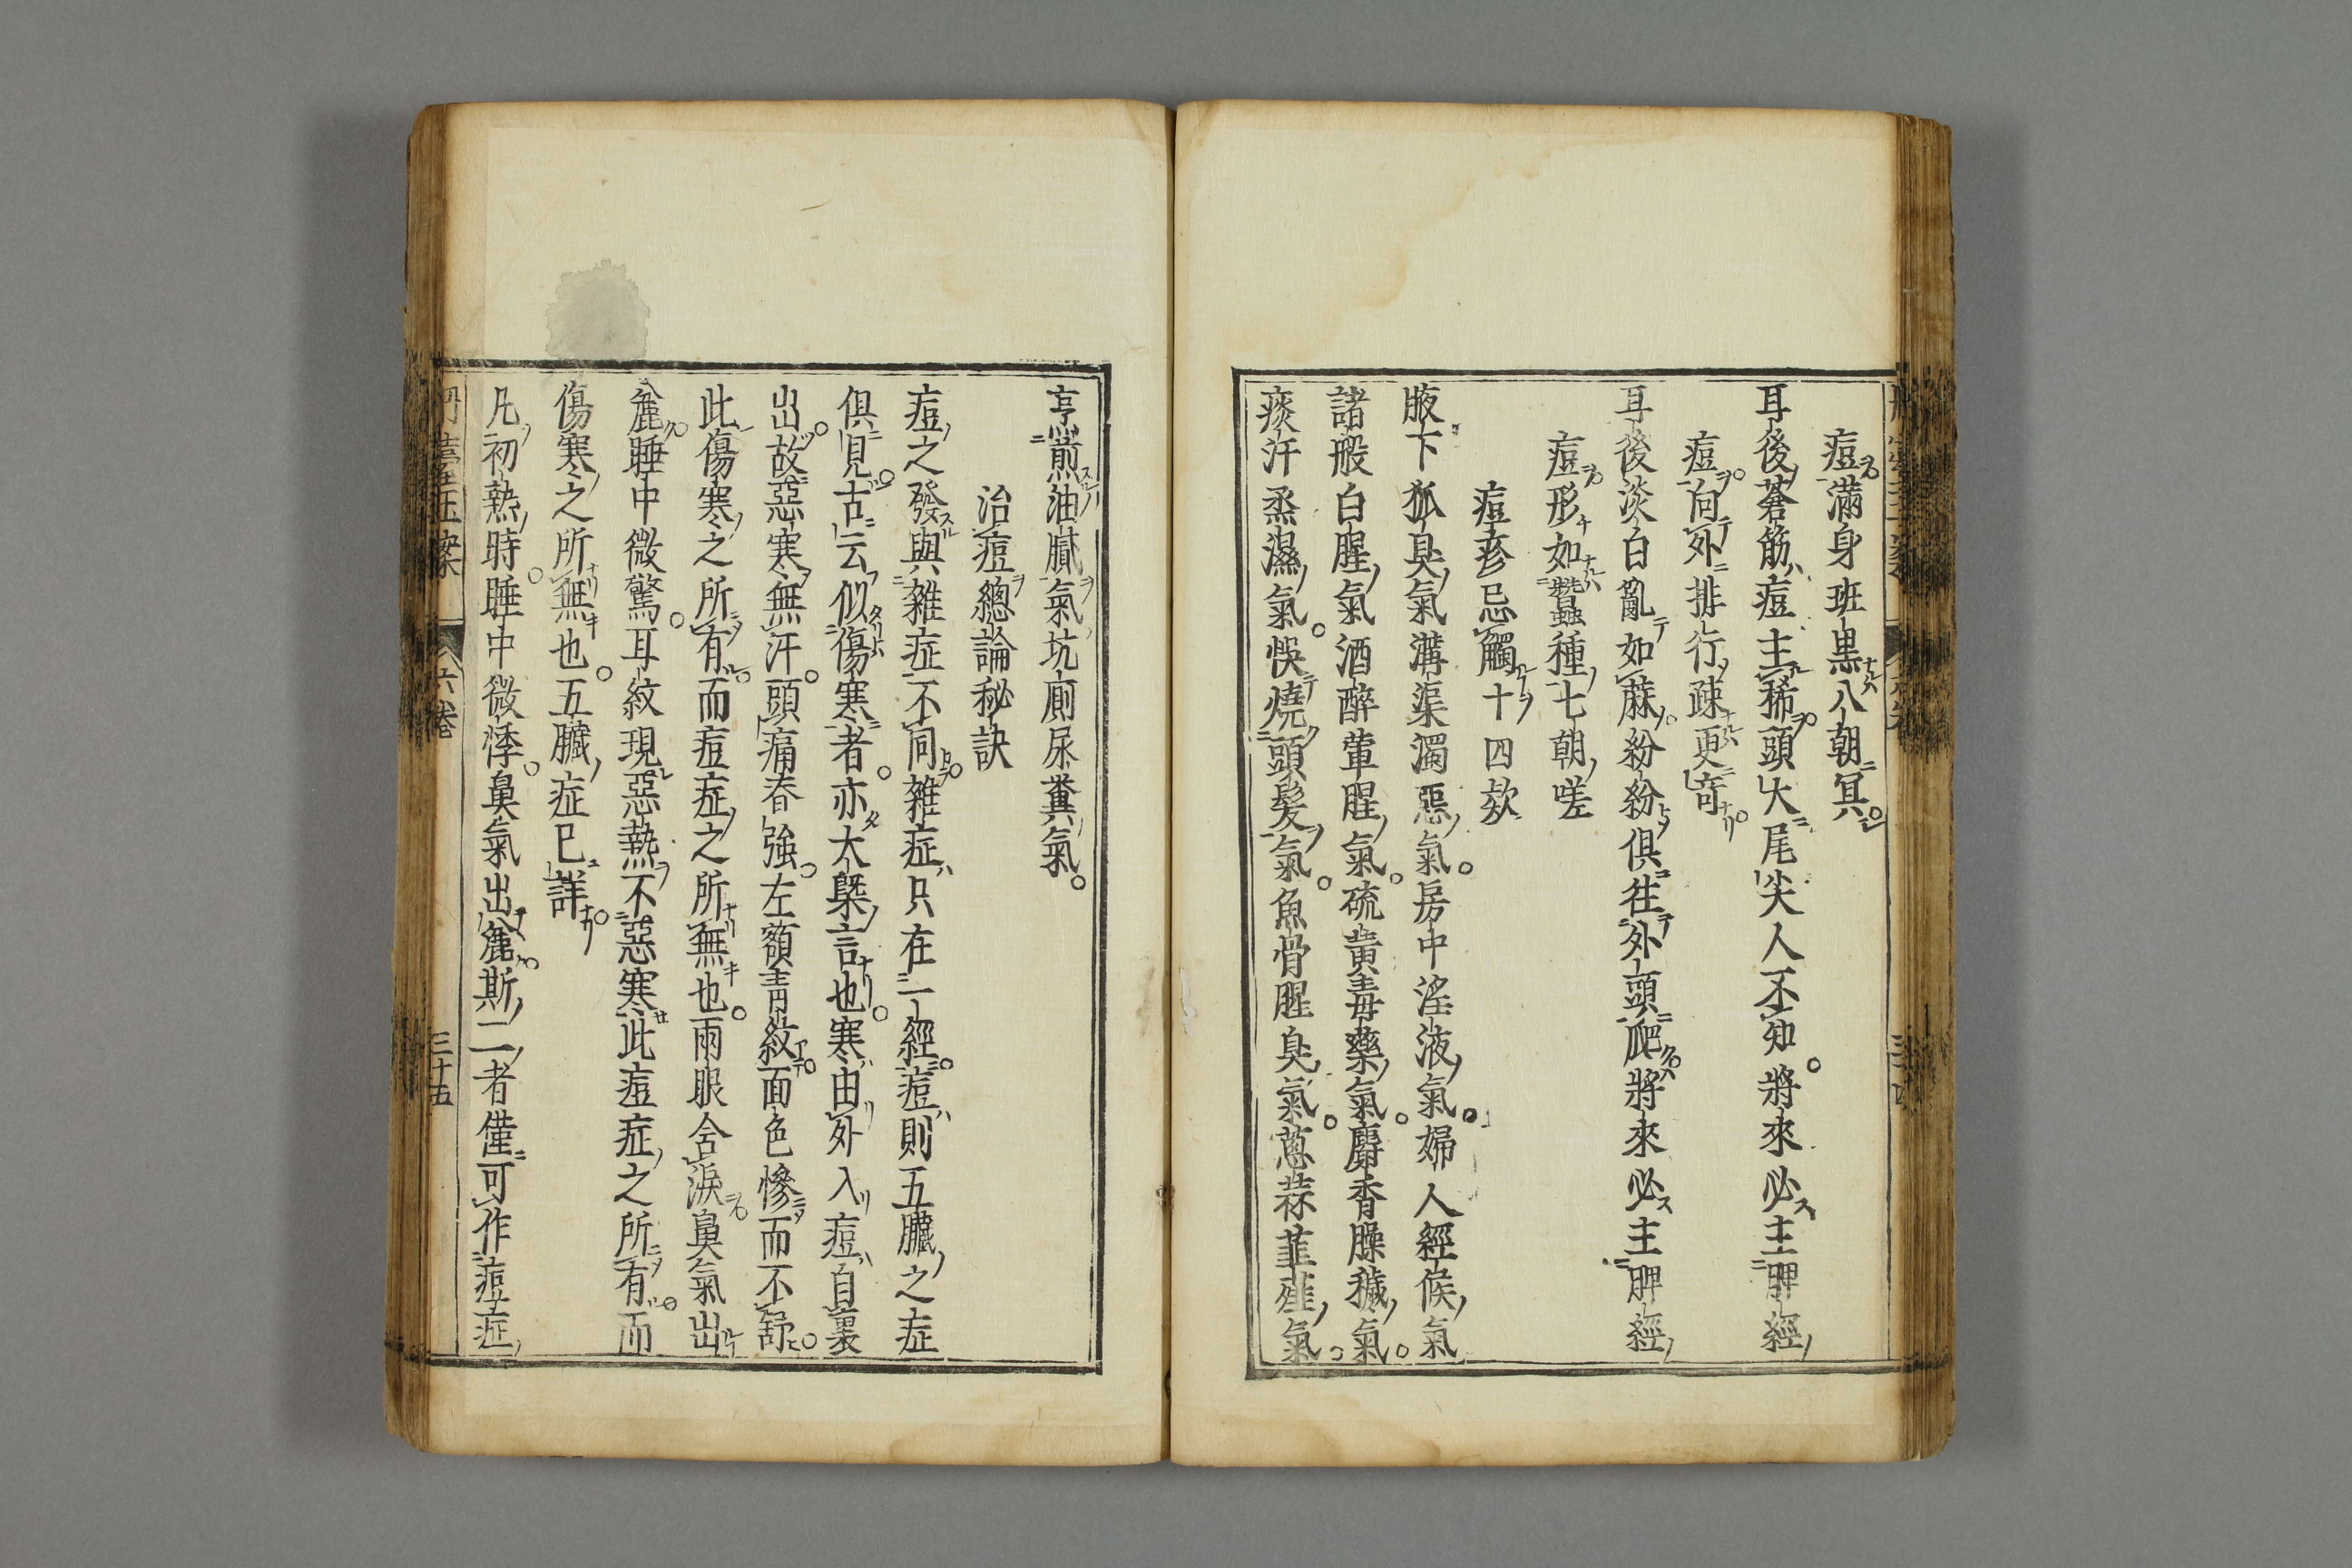 痘滿身班黑八朝冥
耳後蒼筋痘主稀頭大尾尖人不知將來必主脾經
痘向外排行疎更竒
耳後淡白亂如蔴紛紛俱徃外頭爬將來必主脾經
痘形如蠶種七朝嗟
痘疹忌觸十四欵
腋下狐臭氣溝渠濁惡氣房中滛液氣婦人經候氣
諸般白腥氣酒醉葷腥氣硫黃毒藥氣麝香臊穢氣
痰汗蒸濕氣悞燒頭髮氣魚骨腥臭氣蔥蒜韮薤氣
烹煎油膩氣坑廁尿糞氣
治痘總論秘訣
痘之發與雜症不同雜症只在一經痘則五臟之症
俱見古云似傷寒者亦大槩言也寒由外入痘自裏
出故惡寒無汗頭痛脊強左額青紋面色慘而不舒
此傷寒之所有而痘症之所無也兩眼含淚鼻氣出
麄睡中微驚耳紋現惡熱不惡寒此痘症之所有而
傷寒之所無也五臟症巳詳
凡初熱時睡中微悸鼻氣出麄斯二者僅可作痘症
六卷
三十五